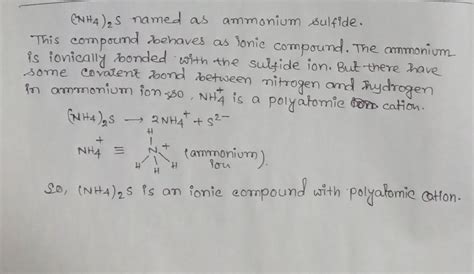 (NH4)2S named as ammonium sulfide.
This compound behaves as ionic compound. The ammonium
is ionically bonded with the sulfide ion. But there have
some covalent bond between nitrogen and hydrogen
in ammonium ion. so, NH4+ is a polyatomic cation.
(NH4)2S → 2NH4+ + S2-
NH4+ ≡ H N+ H H H (ammonium ion).
So, (NH4)2S is an ionic compound with polyatomic cation.